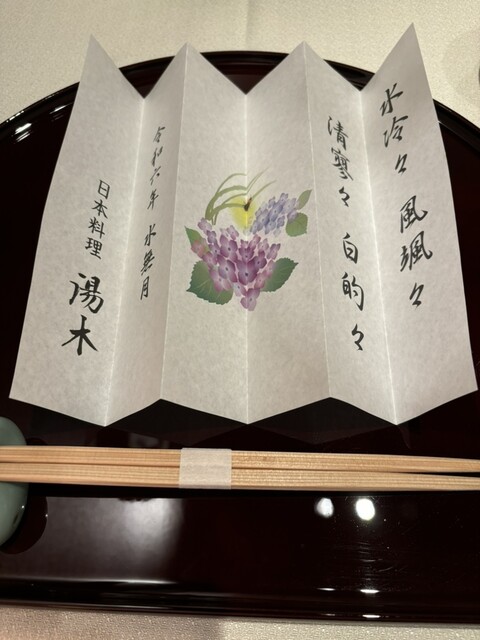 水冷々 風颯々
清寥々 白的々
令和六年 水無月
日本料理 湯木